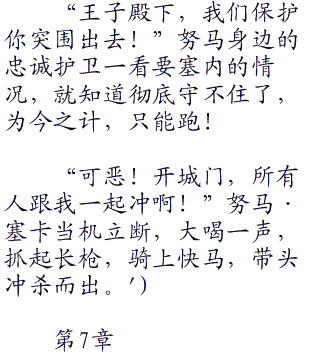 “王子殿下，我们保护
你突围出去！”努马身边的
忠诚护卫一看要塞内的情
况，就知道彻底守不住了，
为今之计，只能跑！
“可恶！开城门，所有
人跟我一起冲啊！”努马·
塞卡当机立断，大喝一声，
抓起长枪，骑上快马，带头
冲杀而出。')
第7章